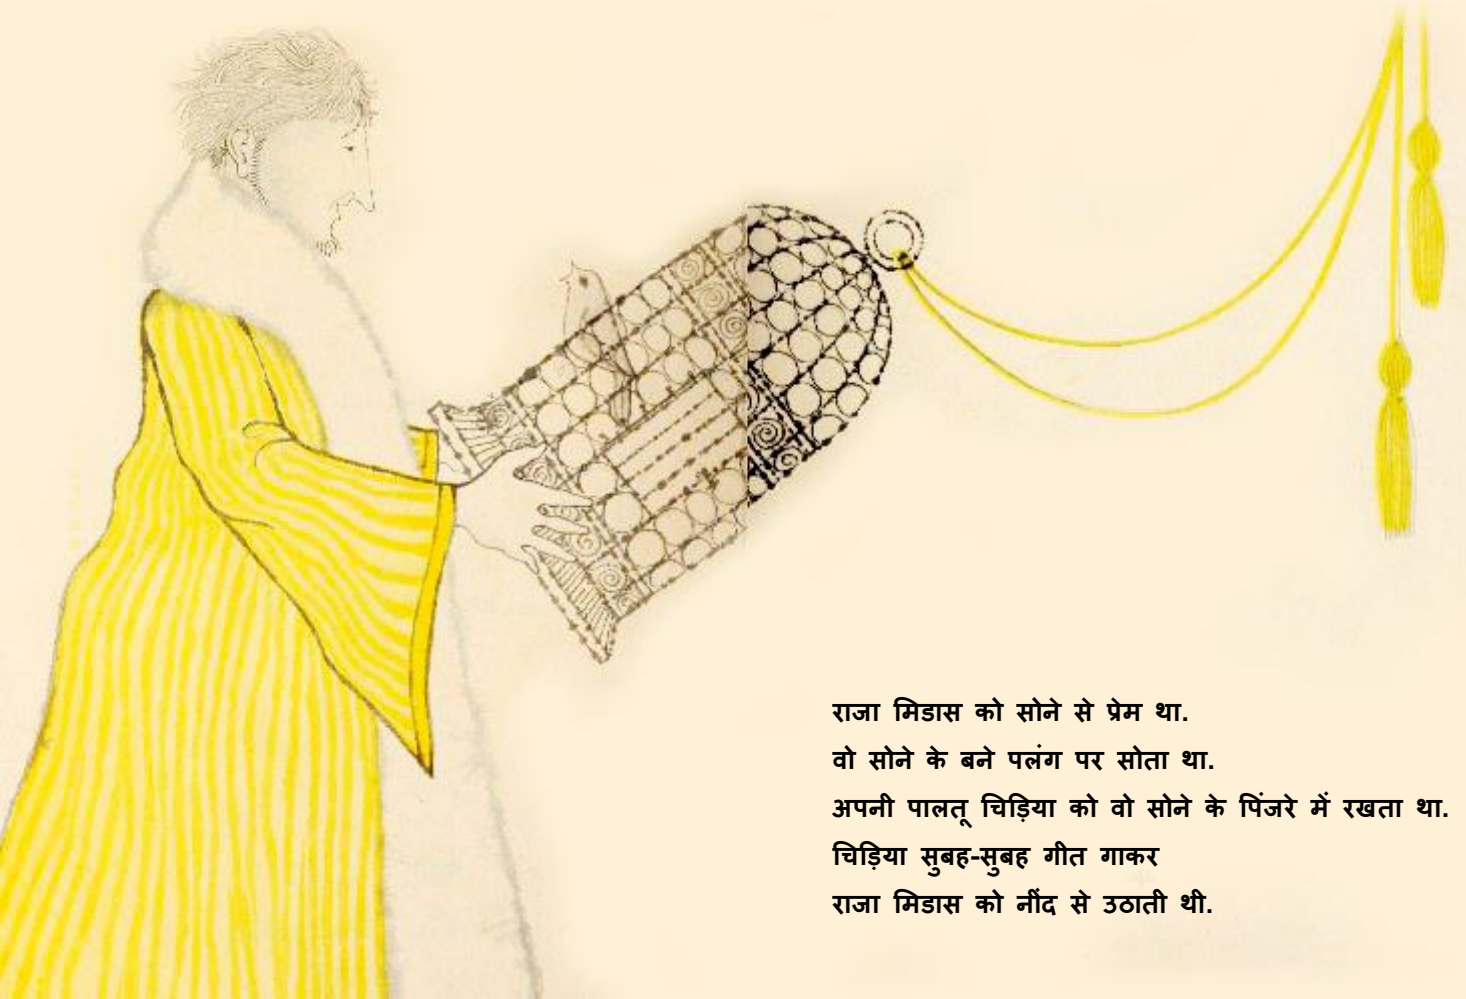 राजा मिडास को सोने से प्रेम था.
वो सोने के बने पलंग पर सोता था.
अपनी पालतू चिड़िया को वो सोने के पिंजरे में रखता था.
चिड़िया सुबह-सुबह गीत गाकर
राजा मिडास को नींद से उठाती थी.